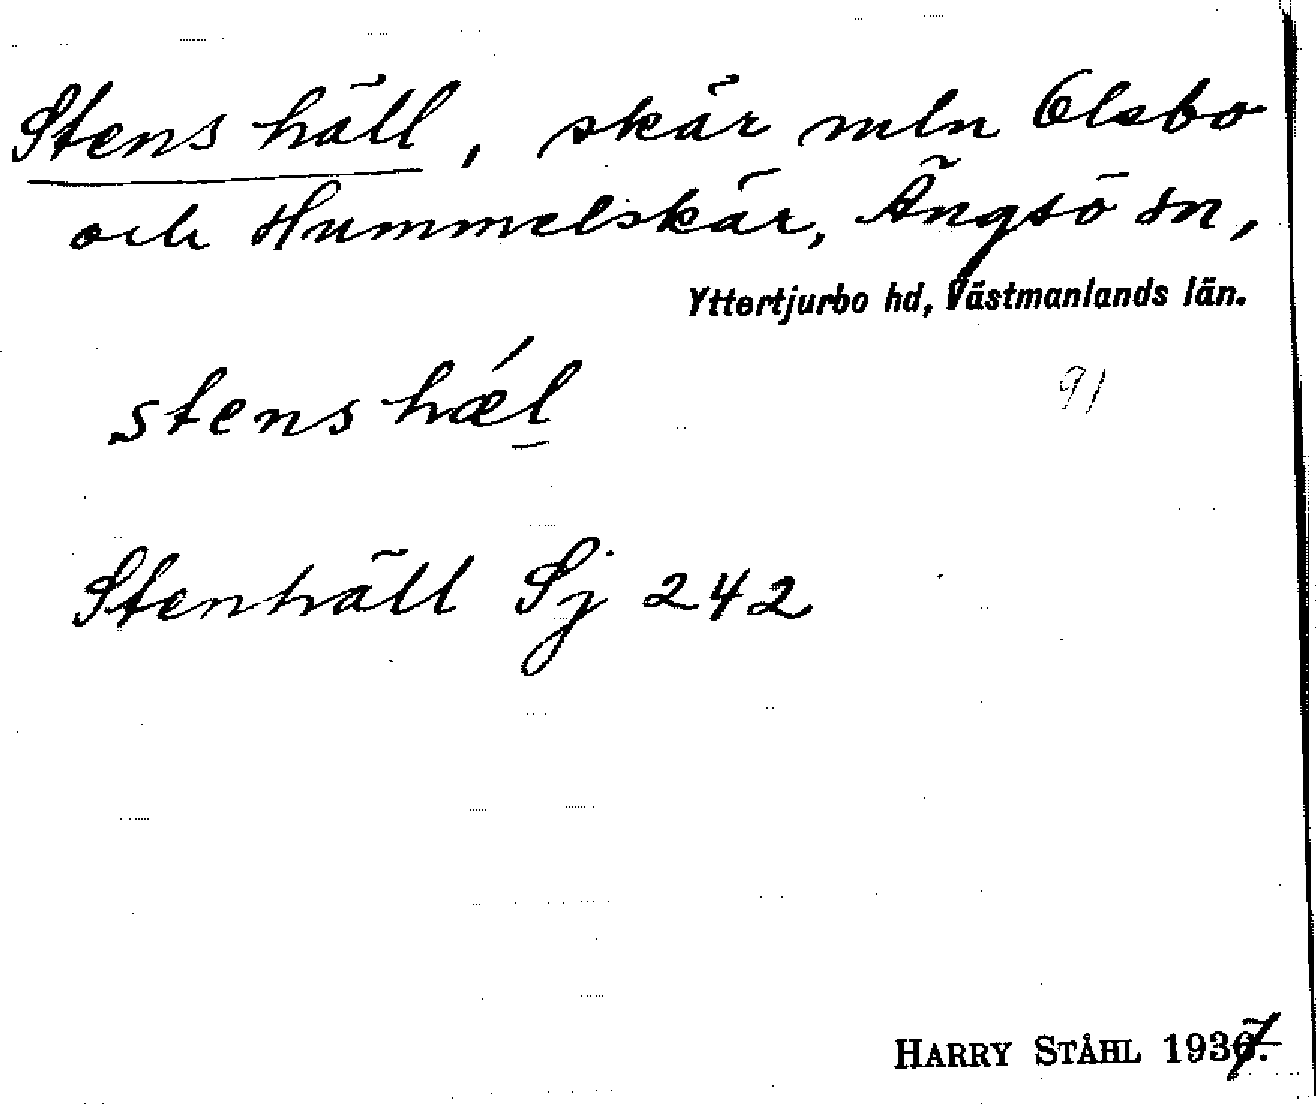 Stenshäll, skär mln Olsbo
och Hummelskär, Ängsö sn,
Yttertjurbo hd, Västmanlands län.
stenshǽl̲
91
Stenhäll Sj 242
HARRY STÅHL 1937.